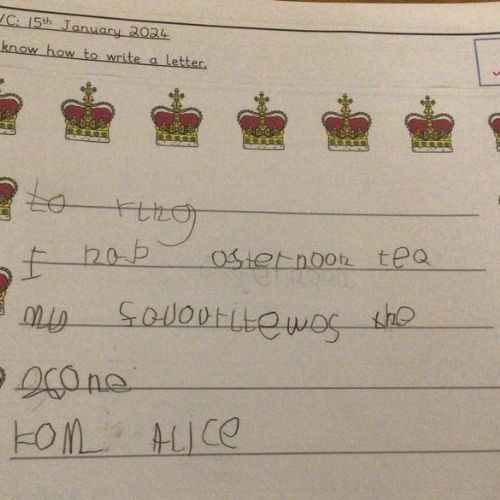 /C: 15th January 2024
know how to write a letter.
to ring
I hab afternoon tea
my favouritewas the
scone
fom Alice